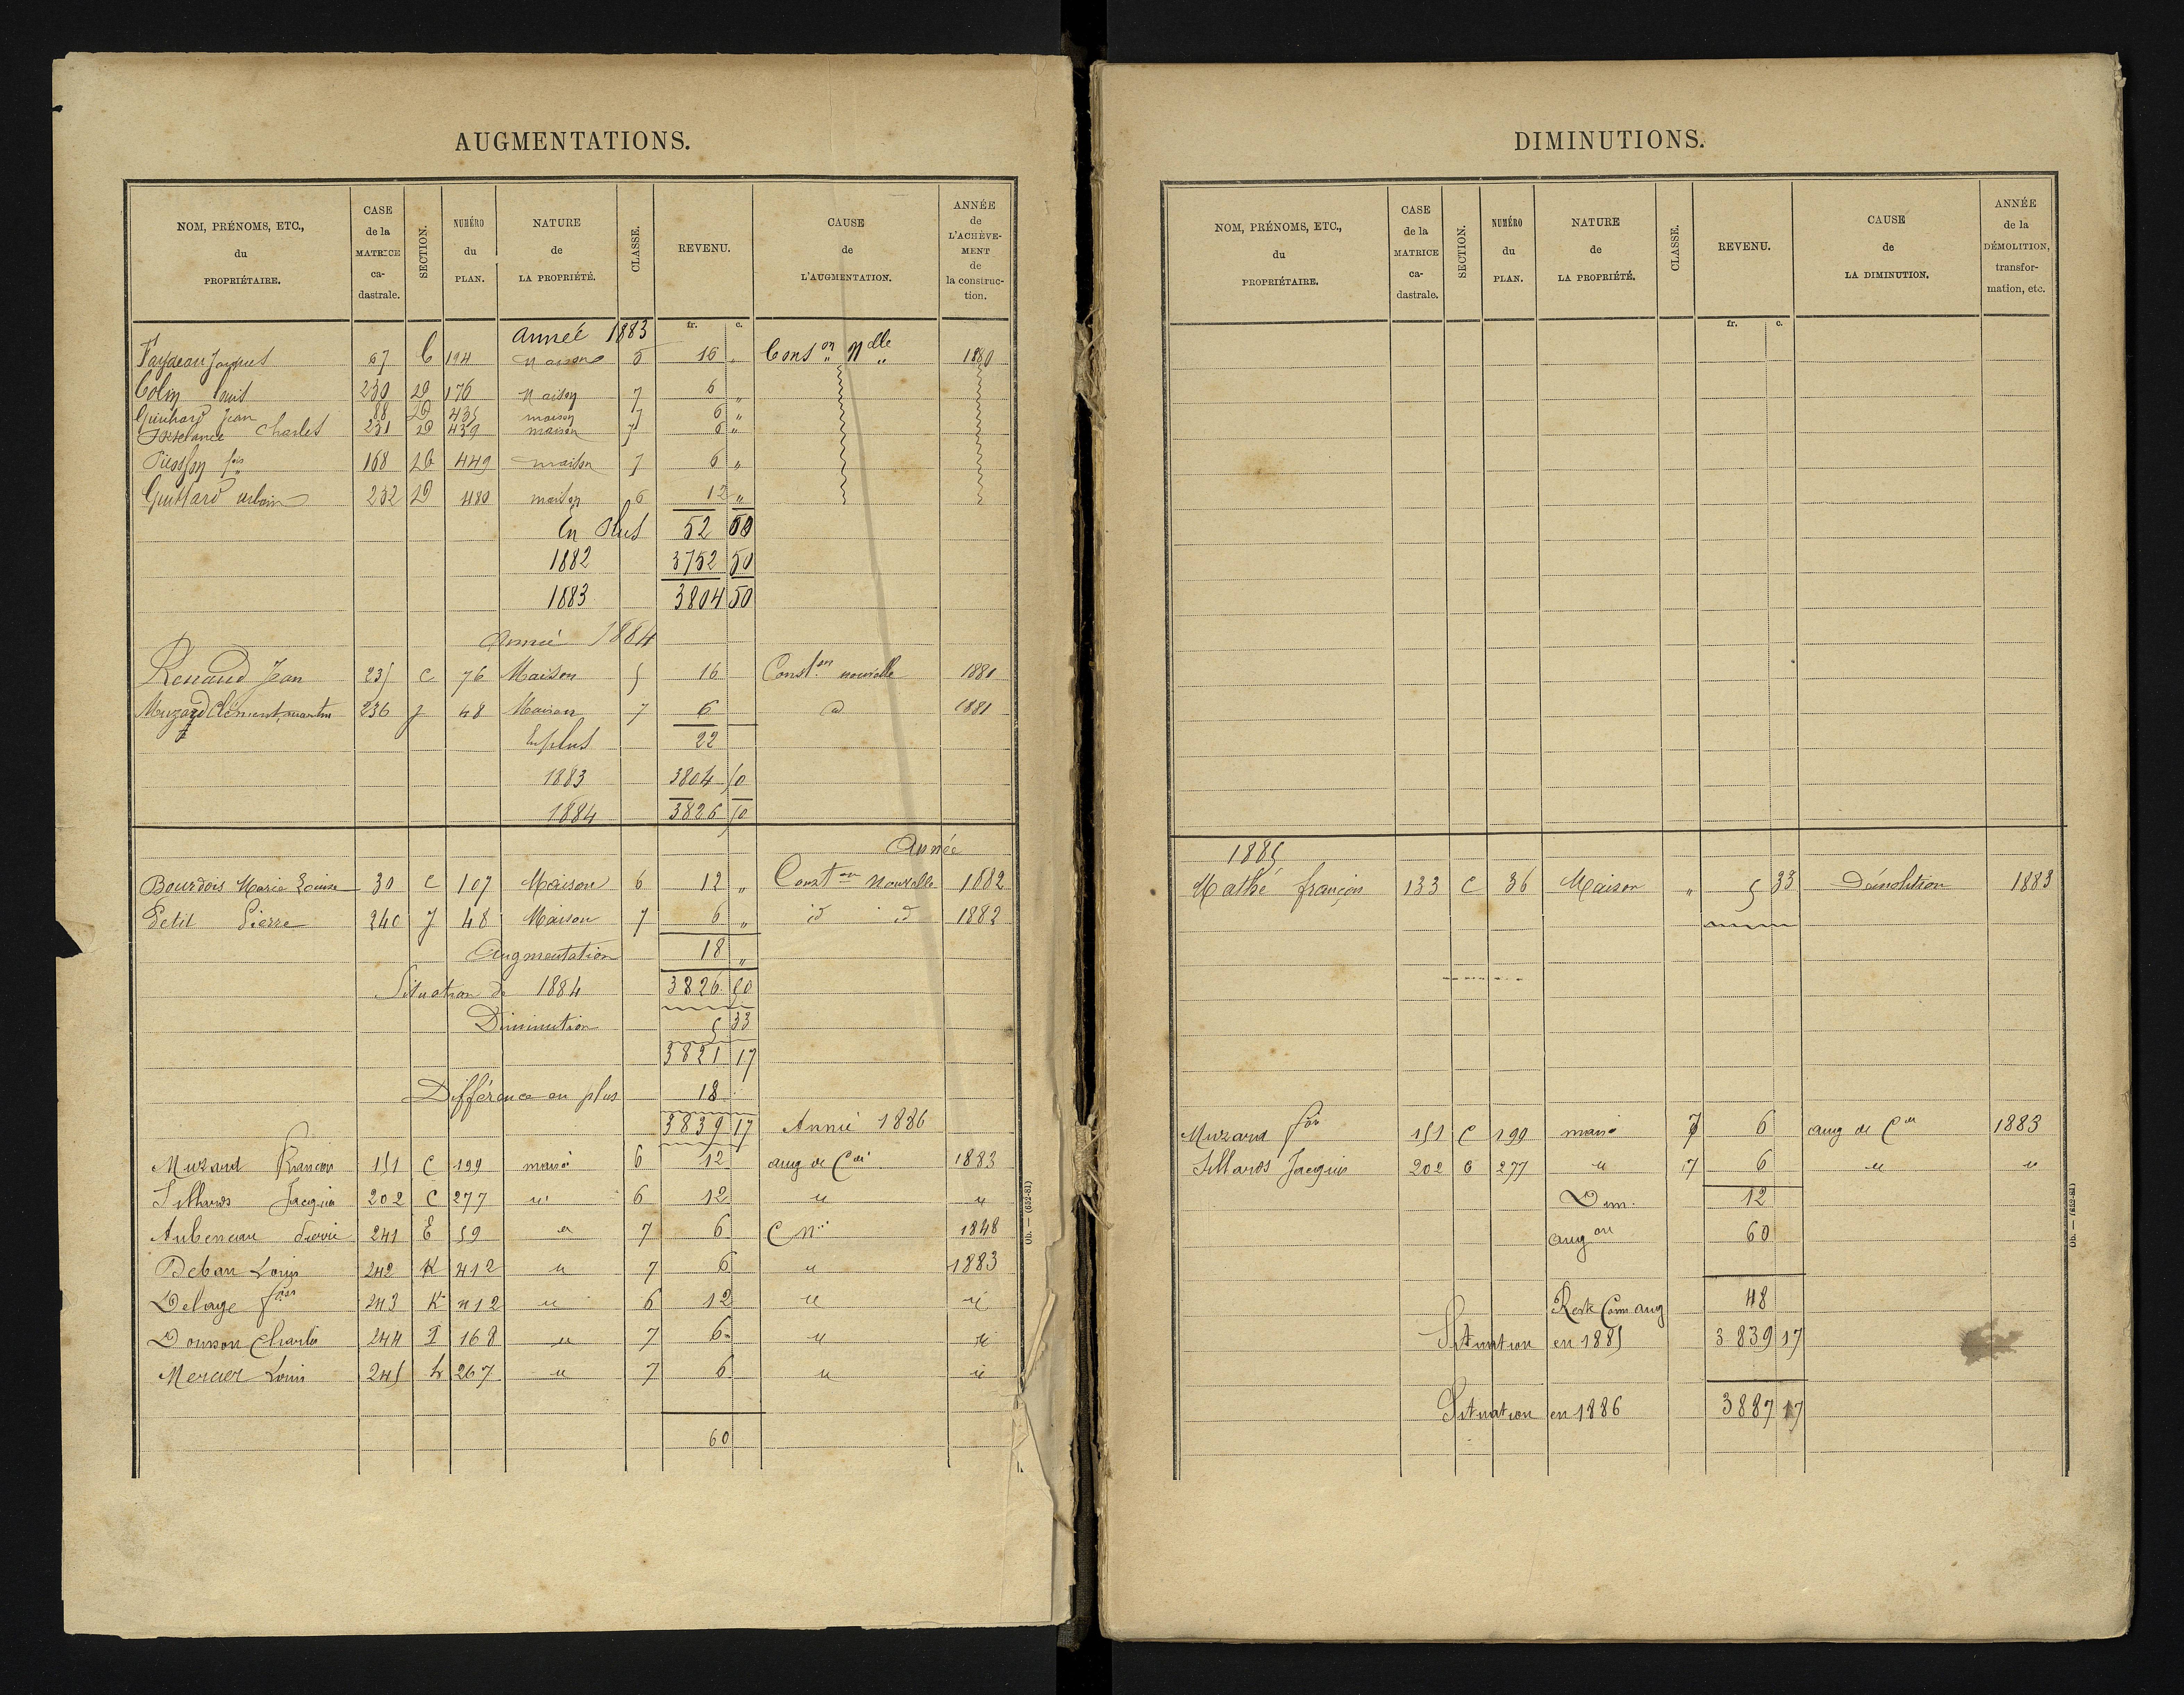 AUGMENTATIONS.
NOM, PRÉNOMS, ETC., du PROPRIÉTAIRE. CASE de la MATRICE ca- dastrale. SECTION. NUMÉRO du PLAN. NATURE de LA PROPRIÉTÉ. CLASSE. REVENU. CAUSE de L'AUGMENTATION. ANNÉE de L'ACHÈVE- MENT de la construc- tion.
fr. c.
Année 1883
Jacques 67 C 194 Maison 5 16 „ Cons on Nelle „ 1880
Colin 230 D 176 Maison 7 6 „
Jean 88 D 435 maison 7 6 „
Charles 231 D 439 maison 7 6 „
168 D 449 maison 7 6 „
232 D 480 maison 6 12 „
En Plus 52 00
1882 3752 50
1883 3804 50
Année 1884
Renaud Jean 235 C 76 Maison 5 16 Const.on nouvelle 1880
Muzard Clément 236 J 48 Maison 7 6 id 1881
En plus 22
1883 3804 50
1884 3826 50
Année
Bourdois Marie Louise 30 C 107 Maison 6 12 „ Const on Nouvelle 1882
Petit Pierre 240 J 48 Maison 7 6 „ id id 1882
Augmentation 18 „
Situation de 1884 3826 50
Diminution 5 33
3821 17
Différence en plus 18
3839 17 Année 1886
Muzard François 151 C 199 maison 6 12 aug de Con 1883
Jacques 202 C 277 " 6 12 " "
241 E 59 " 7 6 C Nlle 1848
Deban Louis 242 K 412 " 7 6 " 1883
Delage fois 243 K 412 " 6 12 " "
Charles 244 I 168 " 7 6 " "
Mercier Louis 245 h 267 " 7 6 " "
60
Ob. — (652-81)
DIMINUTIONS.
NOM, PRÉNOMS, ETC., du PROPRIÉTAIRE. CASE de la MATRICE ca- dastrale. SECTION. NUMÉRO du PLAN. NATURE de LA PROPRIÉTÉ. CLASSE. REVENU. CAUSE de LA DIMINUTION. ANNÉE de la DÉMOLITION, transfor- mation, etc.
fr. c.
1885
Mathé françois 133 C 36 Maison „ 5 33 Démolition 1883
Muzard fois 151 C 199 maison 7 6 aug de Con 1883
Jacques 202 C 277 " 7 6 " "
Dim. 12
aug on 60
Reste Comme aug 48
Situation en 1885 3 839 17
Situation en 1886 3887 17
Ob. — (652-81)